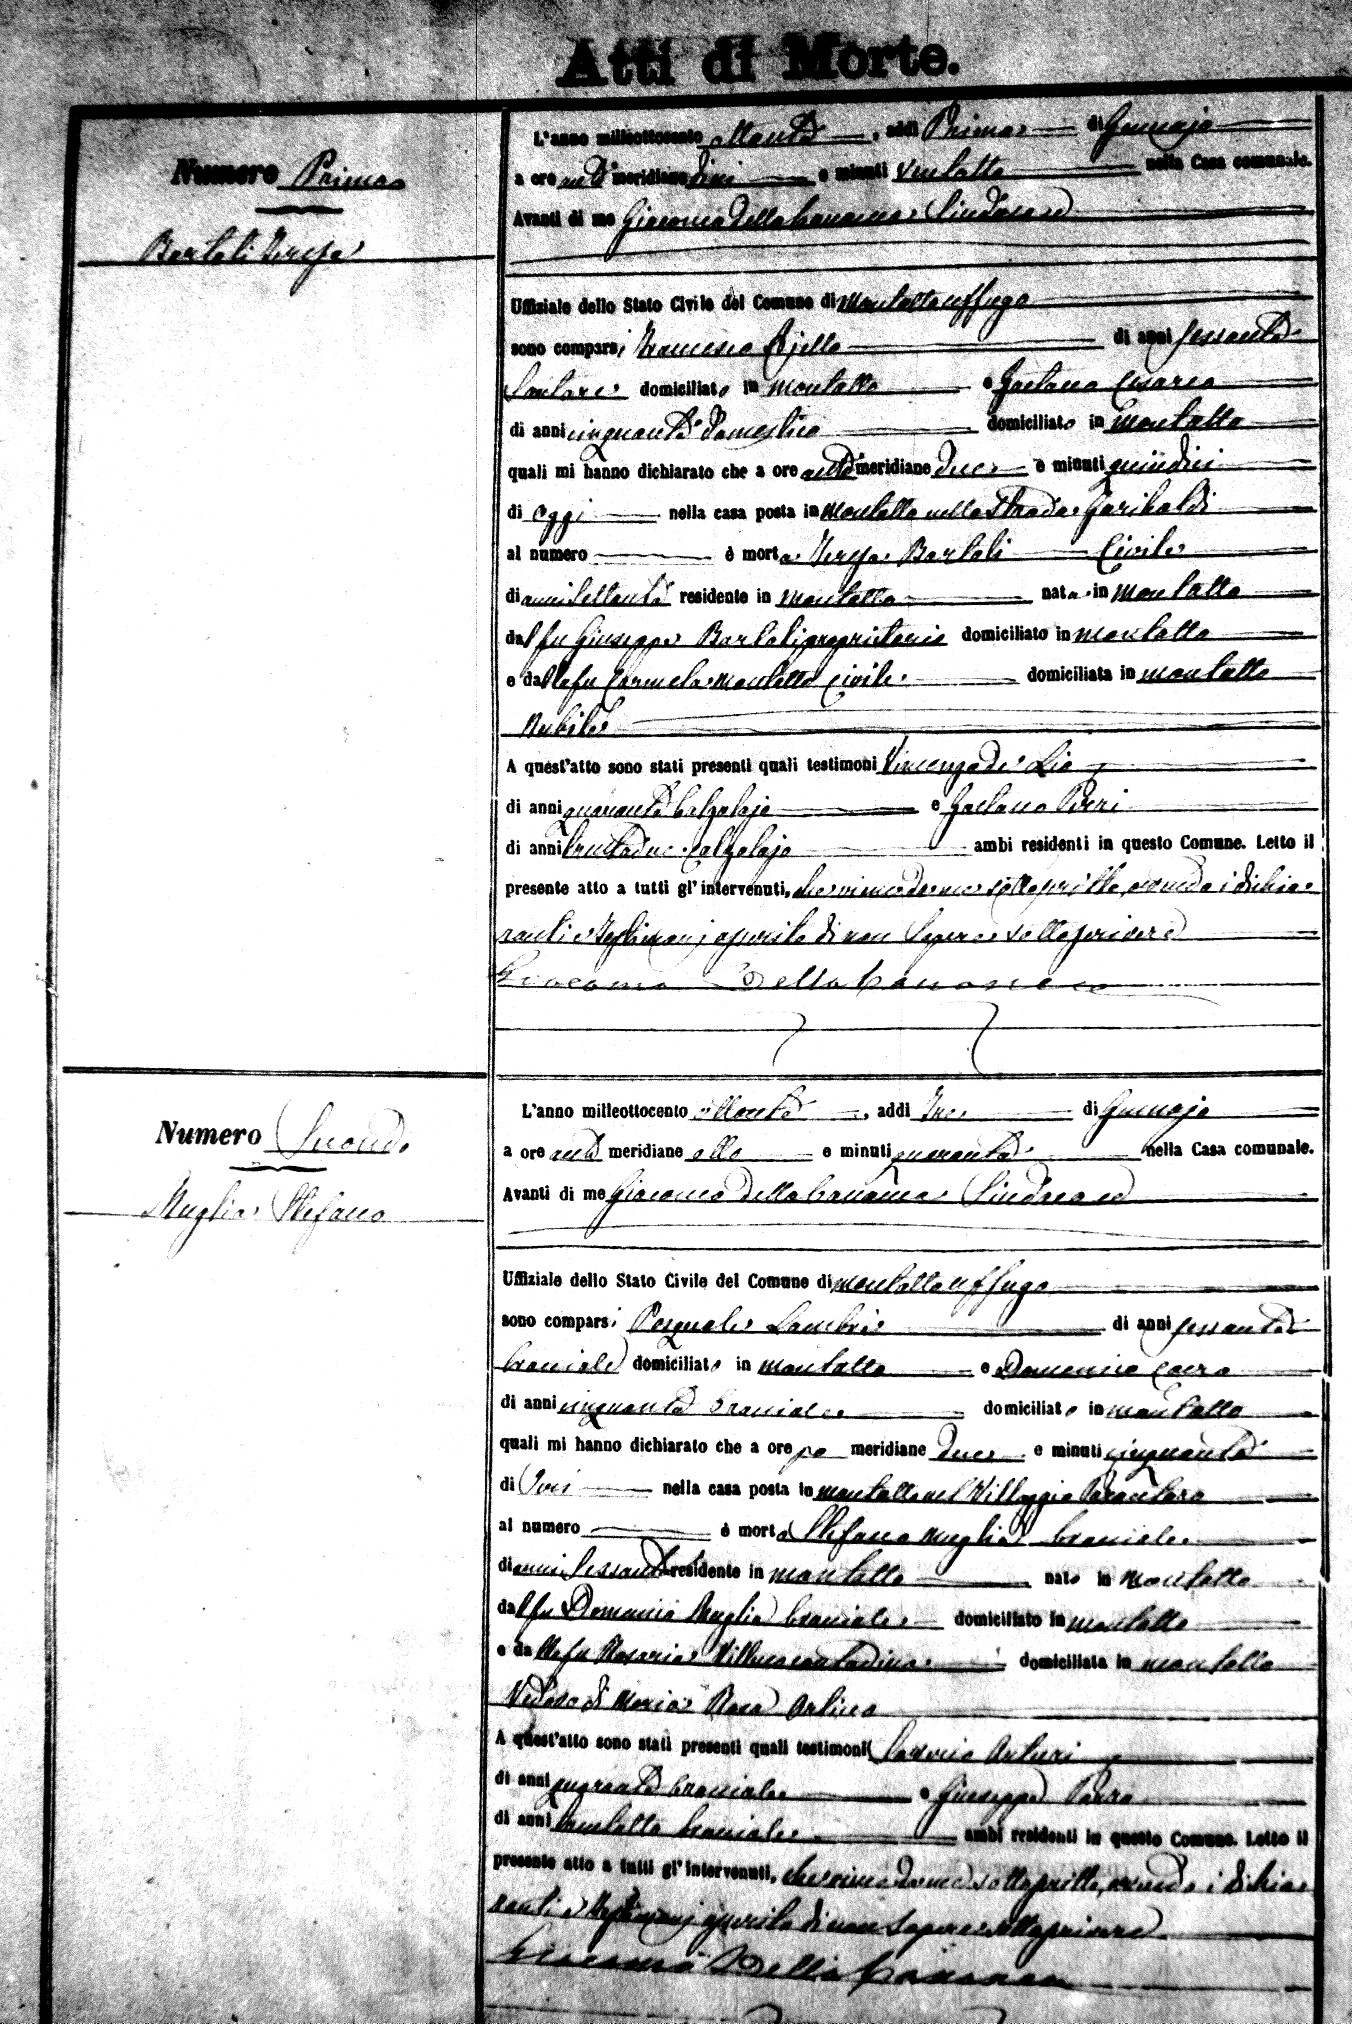 Atti di Morte.
Numero Primo
Bartoli Teresa
L'anno milleottocento ottanta, addì Primo di Gennajo
a ore anti meridiane dieci e minuti ventotto nella Casa comunale.
Avanti di me Giacomo Della Cananea Sindaco ed
Uffiziale dello Stato Civile del Comune di Montalto uffugo
sono comparsi Francesco Ajello di anni sessanta
domiciliato in Montalto e Gaetano Cesario
di anni cinquanta domestico domiciliato in Montalto
quali mi hanno dichiarato che a ore anti meridiane due e minuti quindici
di oggi nella casa posta in Montalto nella Strada Garibaldi
al numero è morta Teresa Bartoli Civile
di anni settanta residente in Montalto nata in Montalto
dal fu Giuseppe Bartoli proprietario domiciliato in Montalto
e dalla fu Carmela Montalto Civile domiciliata in Montalto
Nubile
A quest'atto sono stati presenti quali testimoni Vincenzo de Lio
di anni quaranta Calzolajo e Gaetano Perri
di anni trentadue Calzolajo ambi residenti in questo Comune. Letto il
presente atto a tutti gl'intervenuti, che viene da me sottoscritto, avendo i dichia
ranti e testimonj asserito di non sapere sottoscrivere
Giacomo Della Cananea
Numero Secondo
Muglia Stefano
L'anno milleottocento ottanta, addì Tre di Gennajo
a ore anti meridiane otto e minuti quaranta nella Casa comunale.
Avanti di me Giacomo Della Cananea Sindaco ed
Uffiziale dello Stato Civile del Comune di Montalto uffugo
sono comparsi Pasquale di anni sessanta
bracciale domiciliato in Montalto e Domenico
di anni cinquanta bracciale domiciliato in Montalto
quali mi hanno dichiarato che a ore po meridiane due e minuti cinquanta
di Jeri nella casa posta in Montalto nel Villaggio Parantoro
al numero è morto Stefano Muglia bracciale
di anni sessanta residente in Montalto nato in Montalto
dal fu Domenico Muglia bracciale domiciliato in Montalto
e dalla fu Rosaria contadina domiciliata in Montalto
Vedovo di Maria Rosa
A quest'atto sono stati presenti quali testimoni Arturi
di anni quaranta bracciale e Giuseppe
di anni trentotto bracciale ambi residenti in questo Comune. Letto il
presente atto a tutti gl'intervenuti, che viene da me sottoscritto, avendo i dichia
ranti e testimonj asserito di non sapere sottoscrivere
Giacomo Della Cananea